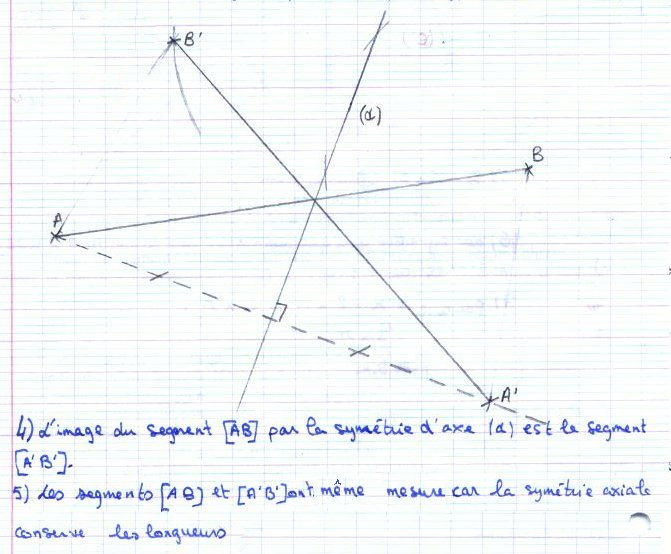 B'
(d)
B
A
A'
4) L'image du segment [AB] par la symétrie d'axe (d) est le segment
[A'B'].
5) Les segments [AB] et [A'B'] ont même mesure car la symétrie axiale
conserve les longueurs